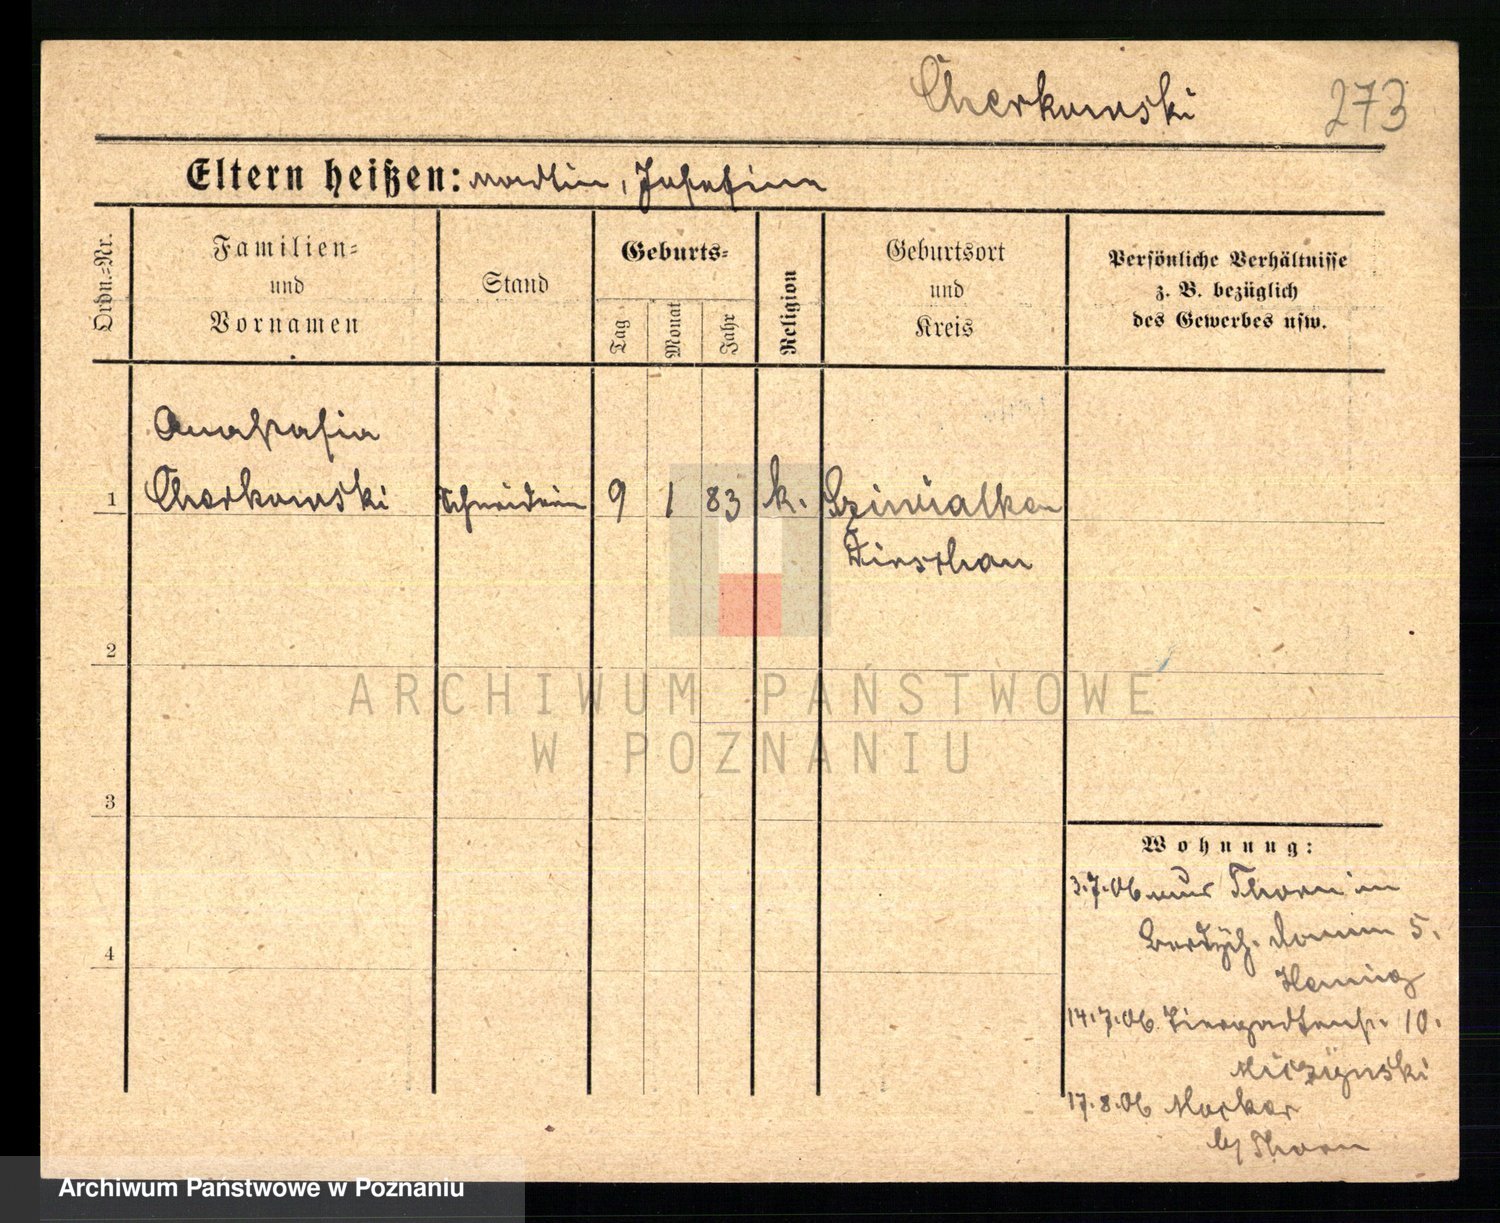 Cherkowski 273
Eltern heißen: Martin, Josefina
Ordn.=Nr.
Familien=
und
Vornamen
Stand
Geburts=
Tag
Monat
Jahr
Religion
Geburtsort
und
Kreis
Persönliche Verhältnisse
z. B. bezüglich
des Gewerbes usw.
Anastasia
1 Cherkowski Schneiderin 9 1 83 k.
Dirschau
2
3
4
Wohnung:
3.7.06 aus Thorn in
5.
14.7.06 Tiergartenstr. 10.
17.8.06 Mocker
b/ Thorn
ARCHIWUM PAŃSTWOWE
W POZNANIU
Archiwum Państwowe w Poznaniu